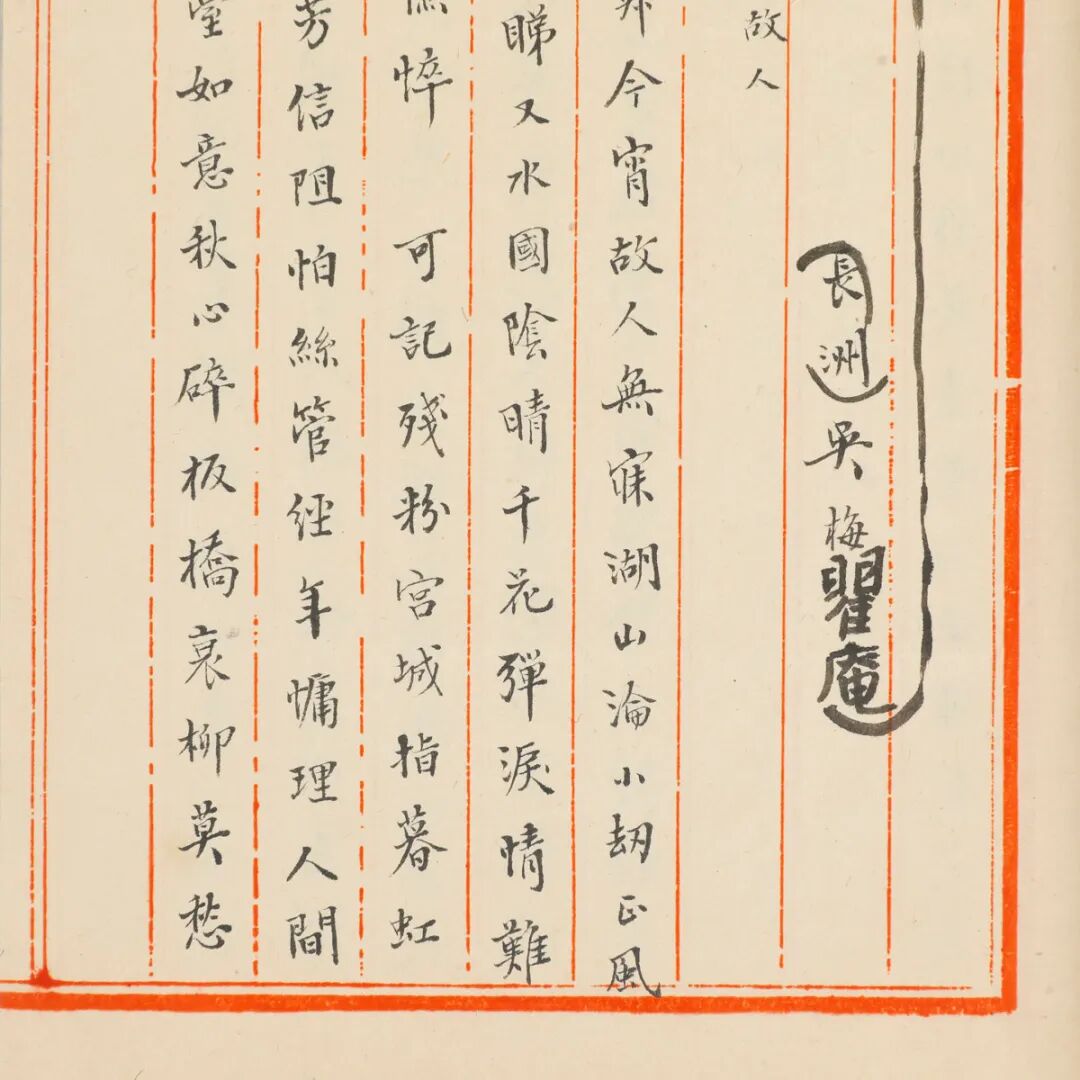 長洲吳梅瞿庵
故人
今宵故人無寐湖山淪小劫正風
睇又水國陰晴千花彈淚情難
悴　可記殘粉宮城指暮虹
芳信阻怕絲管經年慵理人間
堂如意秋心碎板橋衰柳莫愁